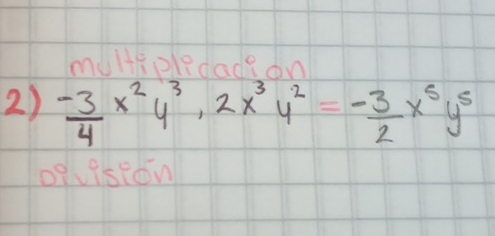 multiplicacion
2) \frac{-3}{4} x^2 y^3 , 2x^3 y^2 = \frac{-3}{2} x^5 y^5
División